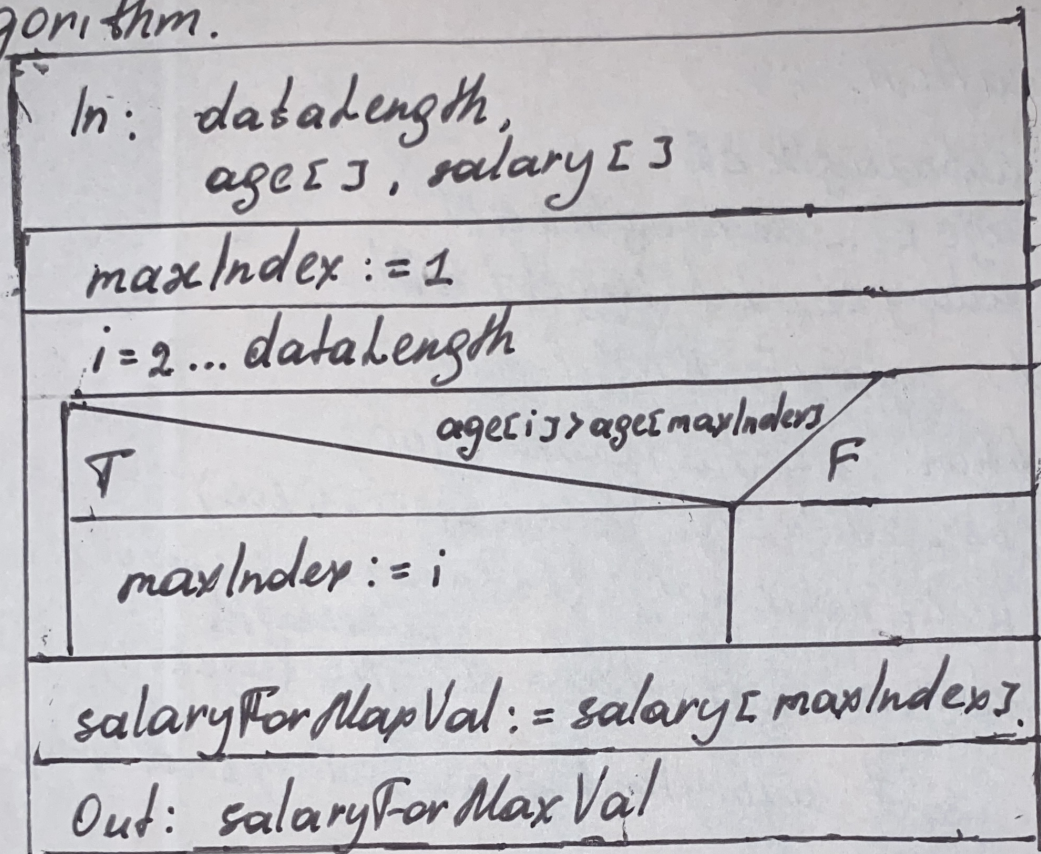 gorithm.
In: dataLength,
age[], salary[]
maxIndex := 1
i = 2 ... dataLength
age[i] > age[maxIndex]
T
F
maxIndex := i
salaryForMaxVal := salary[maxIndex].
Out: salaryForMaxVal